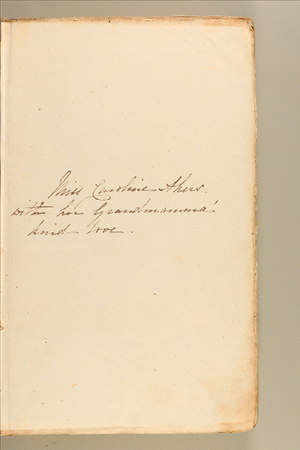 Miss Caroline Akers.
with her Grandmamma's
kind love.